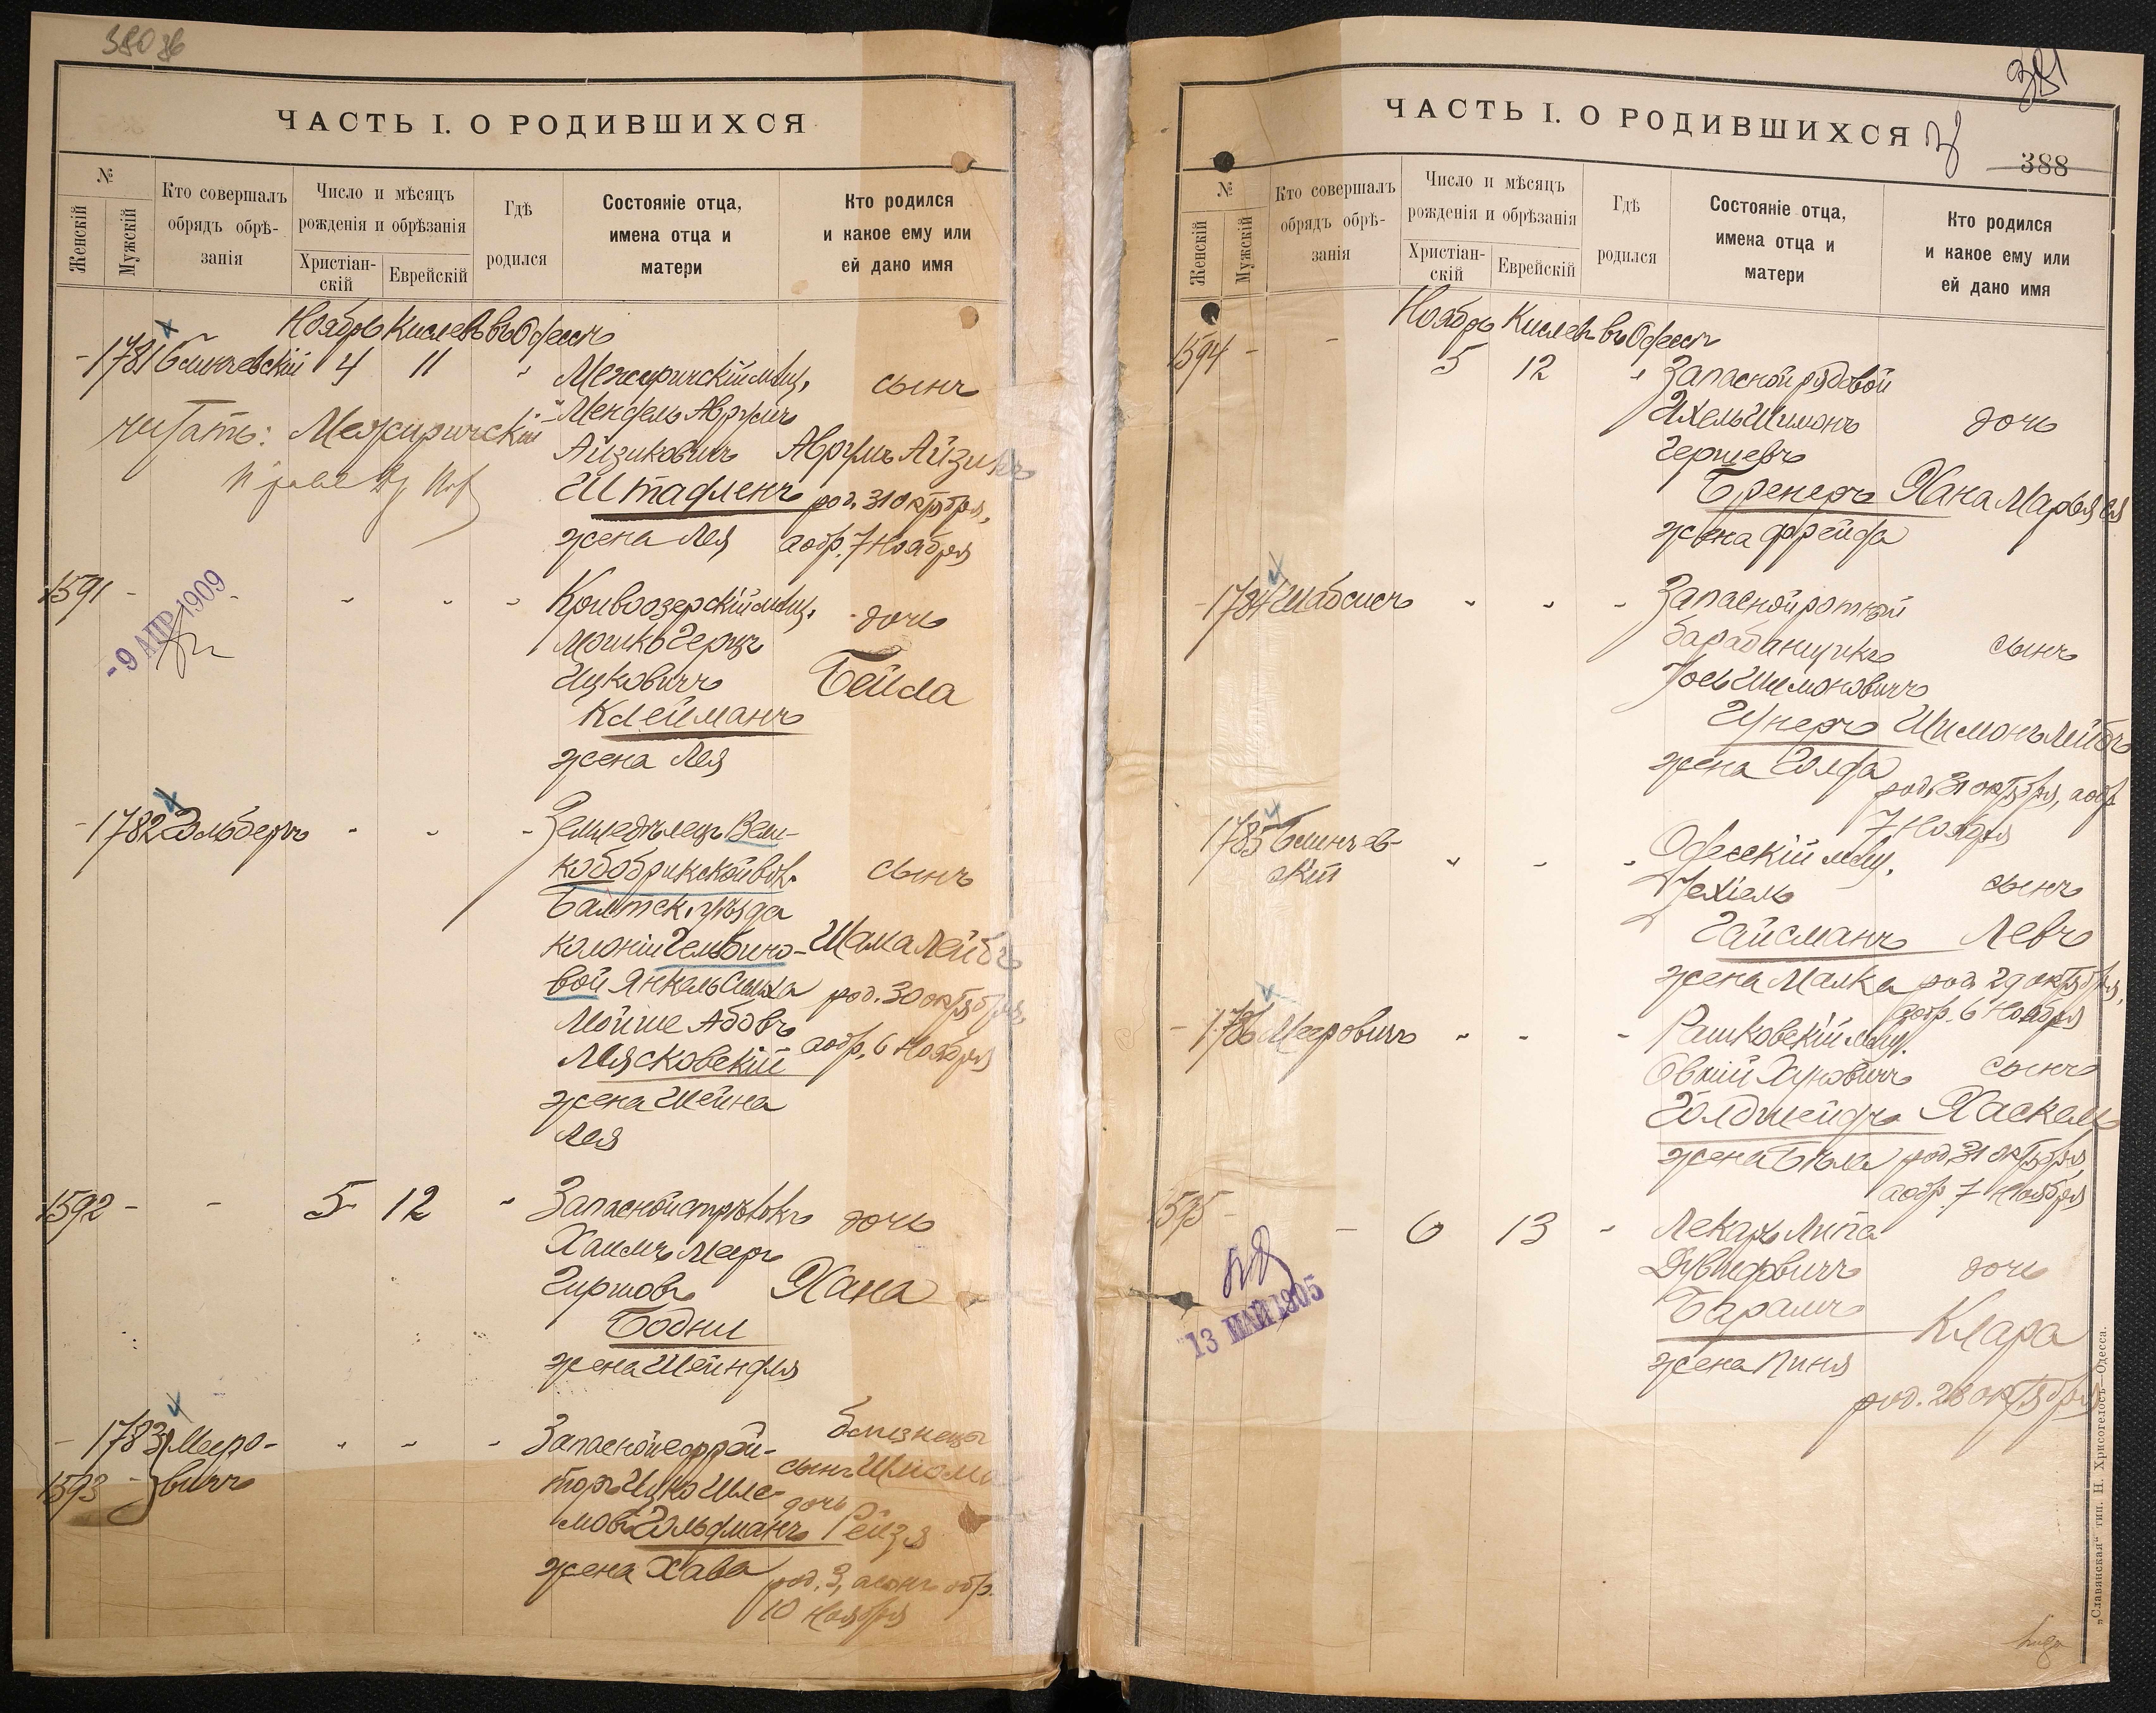 380 об
ЧАСТЬ I. О РОДИВШИХСЯ
№
Женскій
Мужскій
Кто совершалъ
обрядъ обрѣ-
занія
Число и мѣсяцъ
рожденія и обрѣзанія
Христіан-
скій
Еврейскій
Гдѣ
родился
Состояніе отца,
имена отца и
матери
Кто родился
и какое ему или
ей дано имя
Ноябрь Кислевъ въ Одессѣ
- 1781 Блинчевскій 4 11 " Межиричскій мѣщ. сынъ
читать: Межиричскій
Мендель Аврумъ
Айзиковичъ Аврумъ Айзикъ
Штафленъ род. 31 октября,
жена Лея а обр. 7 Ноября
1591 - - " " " Кривоозерскій мѣщ. дочь
-9 АПР 1909
Мошко Герщъ
Ицковичъ Бейла
Клейманъ
жена Лея
- 1782 Гольберъ " " " Земледѣлецъ Вели-
кобобрикской вол. сынъ
Балтск. уѣзда
колоніи Гельбино- Шама Лейбъ
вой Янкель Симха род. 30 октября,
Мойше Абовъ а обр. 6 Ноября
Лясковскій
жена Шейна
Лея
1592 - - 5 12 " Запасной стрѣлокъ дочь
Хаимъ Меръ
Гиршовъ Хана
Бодни
жена Шейндля
- 1783 Меро- " " " Запасной ефрей- близнецы
1593 - вичъ торъ Ицко Шле- сынъ Шлома
мовъ Гольдманъ дочь Рейзя
жена Хава род. 3, а сынъ обр.
10 Ноября
381
ЧАСТЬ I. О РОДИВШИХСЯ
388
№
Женскій
Мужскій
Кто совершалъ
обрядъ обрѣ-
занія
Число и мѣсяцъ
рожденія и обрѣзанія
Христіан-
скій
Еврейскій
Гдѣ
родился
Состояніе отца,
имена отца и
матери
Кто родился
и какое ему или
ей дано имя
Ноябрь Кислевъ въ Одессѣ
1594 - - 5 12 " Запасной рядовой
Ихель Шимонъ дочь
Гершевъ
Бренеръ Хана Марьяся
жена Фрейда
- 1784 Шабсисъ " " " Запасной ротный
барабанщикъ сынъ
Іось Шимоновичъ
Гунеръ Шимонъ Лейбъ
жена Голда
род. 31 октября, а обр.
7 Ноября
1785 Блинчев- " " " Одесскій мѣщ.
скій Іехіель сынъ
Гайсманъ Левъ
жена Малка род. 29 октября,
а обр. 6 Ноября
- 1786 Меровичъ " " " Рашковскій мѣщ.
Овшій Хуновичъ сынъ
Голдшейдъ Хаскель
жена Бейла род. 31 октября,
а обр. 7 Ноября
1595 - - 6 13 " Лекарь Липа
13 МАЙ 1905
дочь
Барамъ Клара
жена Пиня
род. 28 октября
„Славянская“ тип. Н. Хрисогелосъ—Одесса.